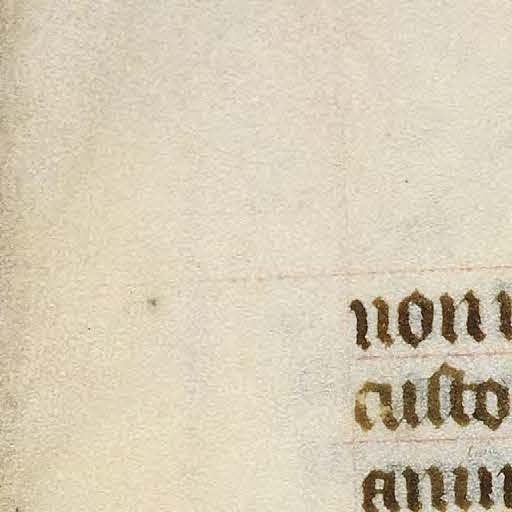 non
custo
anim